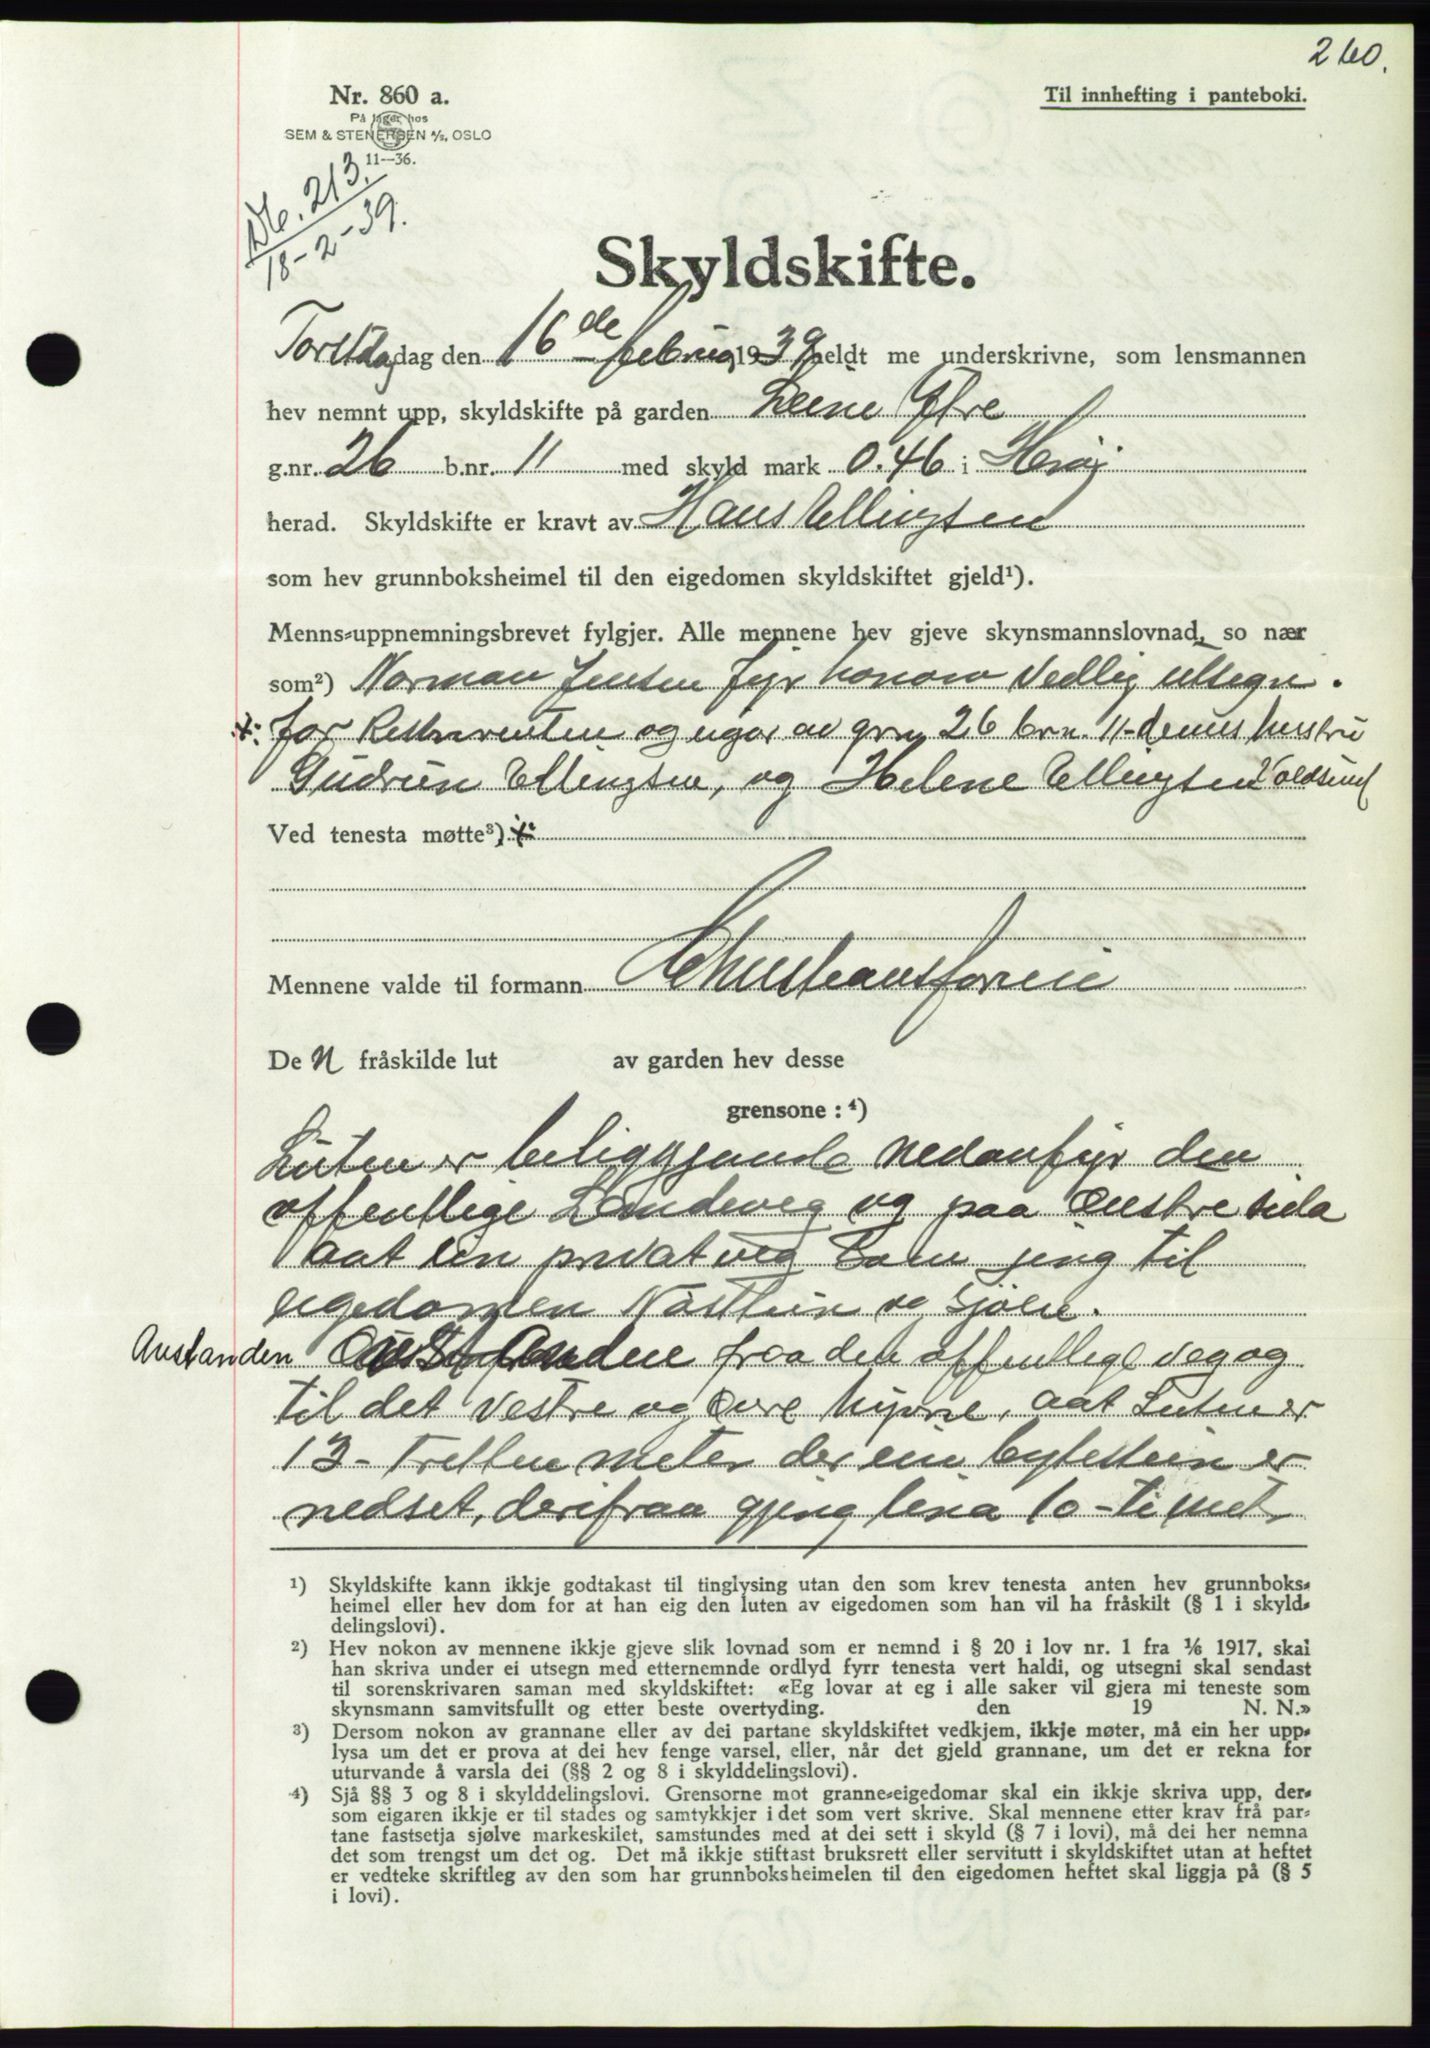 260.
Nr. 860 a.
Til innhefting i panteboki.
På lager hos
SEM & STENERSEN A/S, OSLO
11--36.
No. 213.
18-2-39.
Skyldskifte.
Torsdag dag den 16de februar 1939 heldt me underskrivne, som lensmannen
hev nemnt upp, skyldskifte på garden Leine Ytre
g.nr. 26 b.nr. 11 med skyld mark 0.46 i Herøy
herad. Skyldskifte er kravt av Hans Ellingsen
som hev grunnboksheimel til den eigedomen skyldskiftet gjeld¹).
Menns-uppnemningsbrevet fylgjer. Alle mennene hev gjeve skynsmannslovnad, so nær
som²) Norman Jensen fyr honom vedlig utsegn.
for Rekvirenten og eigar av grn 26 brn. 11- hustru
Gudrun Ellingsen, og Helene Ellingsen Voldsund
Ved tenesta møtte³)
Mennene valde til formann
De n fråskilde lut av garden hev desse
grensone : ⁴)
Luten er beliggjande nedanfyr den
offentlige Landeveg og paa Austre sida
aat ein privat veg som jeng til
eigedomen og sjøen.
Austanden fraa den offentlege veg og
til det vestre og övre hyrne, aat Luten er
13- tretten meter der ein bytestein er
nedset, derifraa gjeng lina 10 - ti met.
¹) Skyldskifte kann ikkje godtakast til tinglysing utan den som krev tenesta anten hev grunnboks-
heimel eller hev dom for at han eig den luten av eigedomen som han vil ha fråskilt (§ 1 i skyld-
delingslovi).
²) Hev nokon av mennene ikkje gjeve slik lovnad som er nemnd i § 20 i lov nr. 1 fra 1/6 1917, skal
han skriva under ei utsegn med etternemnde ordlyd fyrr tenesta vert haldi, og utsegni skal sendast
til sorenskrivaren saman med skyldskiftet: «Eg lovar at eg i alle saker vil gjera mi teneste som
skynsmann samvitsfullt og etter beste overtyding. den 19 N. N.»
³) Dersom nokon av grannane eller av dei partane skyldskiftet vedkjem, ikkje møter, må ein her upp-
lysa um det er prova at dei hev fenge varsel, eller, når det gjeld grannane, um det er rekna for
uturvande å varsla dei (§§ 2 og 8 i skylddelingslovi).
⁴) Sjå §§ 3 og 8 i skylddelingslovi. Grensorne mot granne-eigedomar skal ein ikkje skriva upp, der-
som eigaren ikkje er til stades og samtykkjer i det som vert skrive. Skal mennene etter krav frå par-
tane fastsetja sjølve markeskilet, samstundes med at dei sett i skyld (§ 7 i lovi), må dei her nemna
det som trengst um det og. Det må ikkje stiftast bruksrett eller servitutt i skyldskiftet utan at heftet
er vedteke skriftleg av den som har grunnboksheimelen til den eigedomen heftet skal liggja på (§ 5
i lovi).